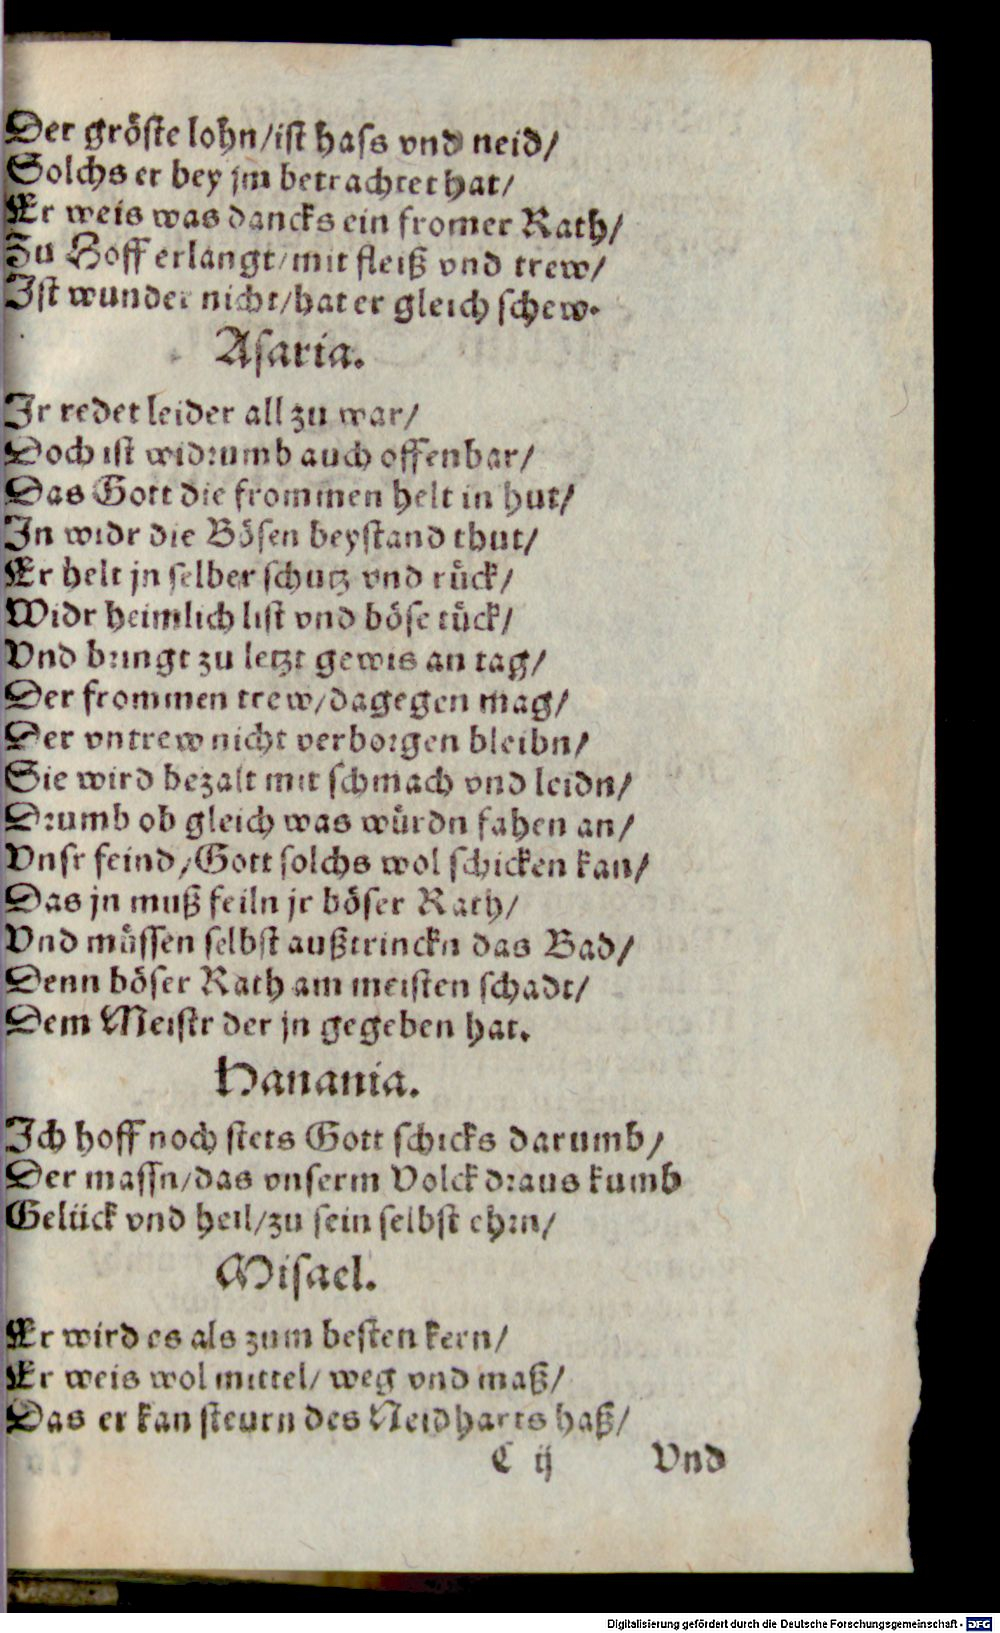 Der gröste lohn/ist hass vnd neid/
Solchs er bey jm betrachtet hat/
Er weis was dancks ein fromer Rath/
Zu Hoff erlangt/mit fleiß vnd trew/
Ist wunder nicht/hat er gleich schew.
Asaria.
Ir redet leider all zu war/
Doch ist widrumb auch offenbar/
Das Gott die frommen helt in hut/
In widr die Bösen beystand thut/
Er helt jn selber schutz vnd rück/
Widr heimlich list vnd böse tück/
Vnd bringt zu letzt gewis an tag/
Der frommen trew/dagegen mag/
Der vntrew nicht verborgen bleibn/
Sie wird bezalt mit schmach vnd leidn/
Drumb ob gleich was würdn fahen an/
Vnsr feind/Gott solchs wol schicken kan/
Das jn muß feiln jr böser Rath/
Vnd müssen selbst außtrinckn das Bad/
Denn böser Rath am meisten schadt/
Dem Meistr der jn gegeben hat.
Hanania.
Ich hoff noch stets Gott schicks darumb/
Der massn/das vnserm Volck draus kumb
Gelück vnd heil/zu sein selbst ehrn/
Misael.
Er wird es als zum besten kern/
Er weis wol mittel/ weg vnd maß/
Das er kan steurn des Neidharts haß/
C ij Vnd
Digitalisierung gefördert durch die Deutsche Forschungsgemeinschaft - DFG